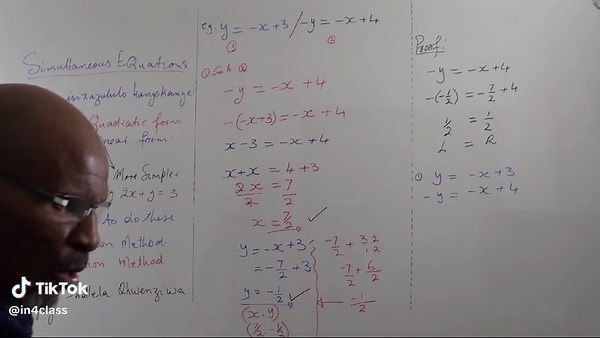 Simultaneous Equations
isixazululo kanyekanye
Quadratic form
linear form.
More Simpler
2x + y = 3
to do these
Method
Method
Qhwenziwa
eg. y = -x + 3 / -y = -x + 4
① ②
① Sub ②
-y = -x + 4
-(-x+3) = -x + 4
x - 3 = -x + 4
x + x = 4 + 3
2x/2 = 7/2
x = 7/2 ✓
y = -x + 3
= -7/2 + 3
y = -1/2 ✓
(x, y)
(7/2, -1/2)
-7/2 + 3
-7/2 + 6/2
-1/2
Proof:
-y = -x + 4
-(-1/2) = -7/2 + 4
1/2 = 1/2
L = R
① y = -x + 3
-y = -x + 4
TikTok
@in4class